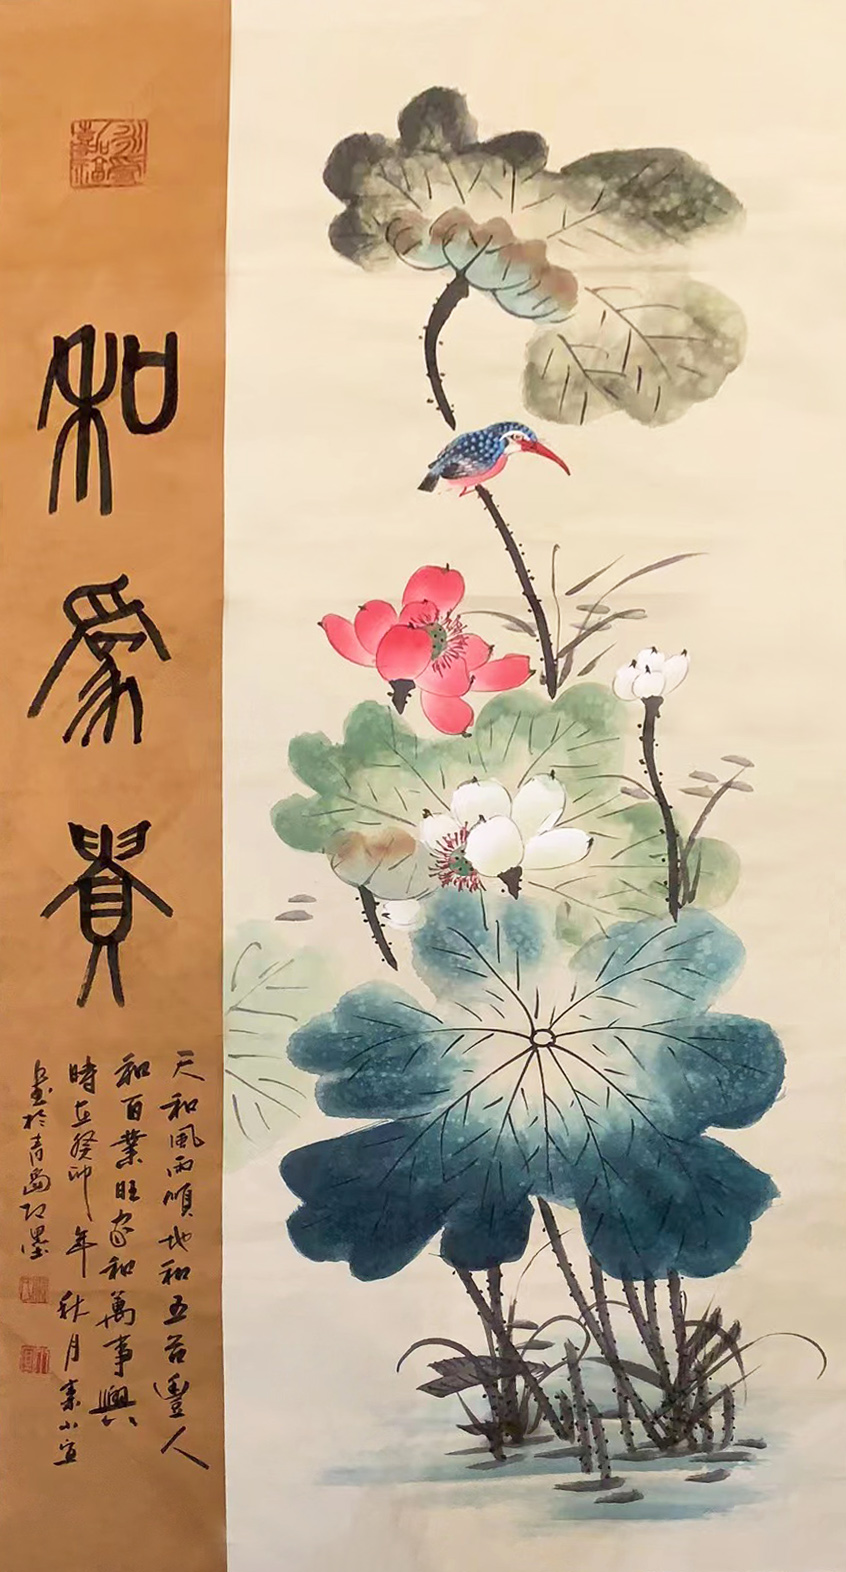 和為貴
天和風雨順地和五谷豐人
和百業旺家和萬事興
時在癸卯年秋月秦小宜
畫於青島